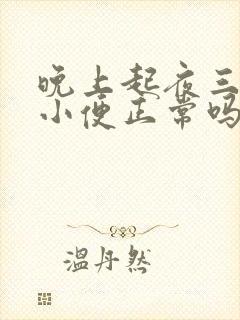 晚上起夜三
小便正常吗
温丹然